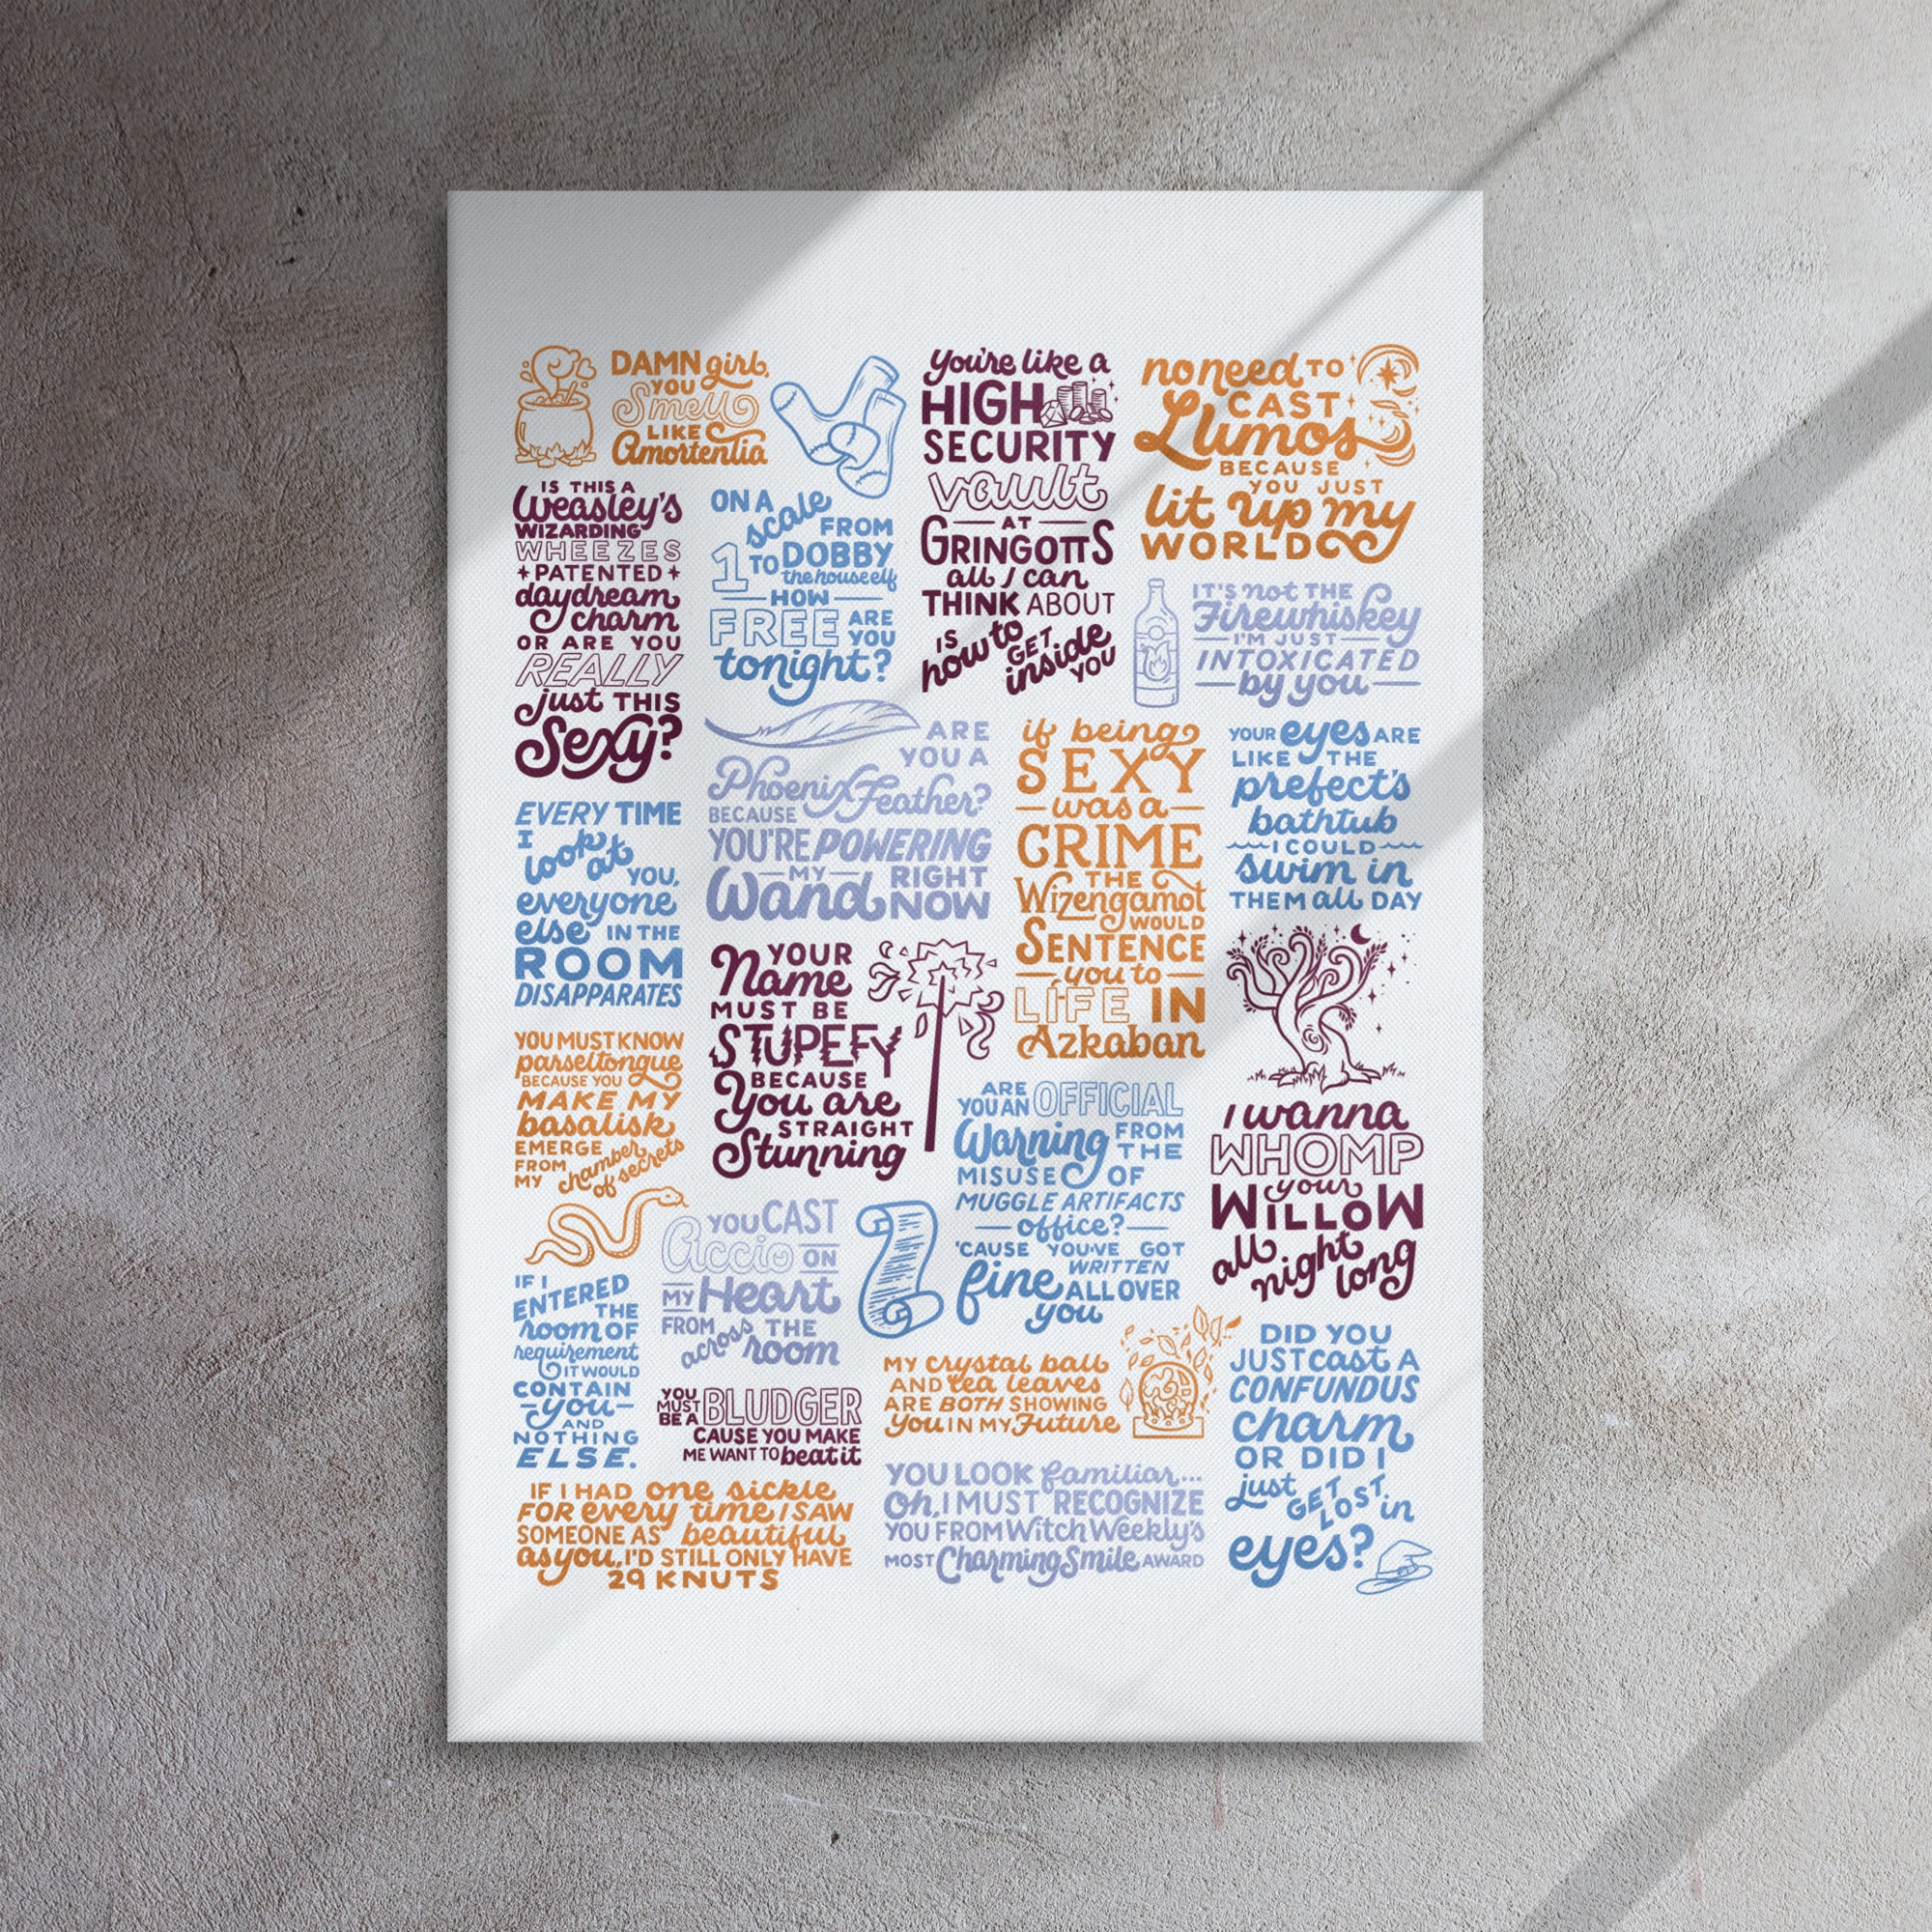 DAMN girl,
YOU
Smell
LIKE
Amortentia
IS THIS A
Weasley's
WIZARDING
WHEEZES
PATENTED
daydream
charm
OR ARE YOU
REALLY
just THIS
Sexy?
ON A
scale
FROM
1 TO DOBBY
the house elf
HOW
FREE ARE
YOU
tonight?
You're like a
HIGH
SECURITY
vault
AT
GRINGOTTS
all I can
THINK ABOUT
IS
how to
GET
inside
YOU
no need TO
CAST
Lumos
BECAUSE
YOU JUST
lit up my
WORLD
IT'S not THE
Firewhiskey
I'M JUST
INTOXICATED
by you
ARE
YOU A
Phoenix Feather?
BECAUSE
YOU'RE POWERING
MY
Wand RIGHT
NOW
if being
SEXY
was a
CRIME
THE
Wizengamot
WOULD
SENTENCE
you to
LIFE IN
Azkaban
YOUR eyes ARE
LIKE THE
prefect's
bathtub
I COULD
swim in
THEM all DAY
EVERY TIME
I
look at
YOU,
everyone
else IN THE
ROOM
DISAPPARATES
YOUR
Name
MUST BE
STUPEFY
BECAUSE
You are
STRAIGHT
Stunning
YOU MUST KNOW
parseltongue
BECAUSE YOU
MAKE MY
basalisk
EMERGE
FROM
MY
chamber
of secrets
ARE
YOU AN OFFICIAL
Warning FROM
THE
MISUSE OF
MUGGLE ARTIFACTS
office?
'CAUSE YOU'VE GOT
WRITTEN
fine ALL OVER
you
I wanna
WHOMP
your
WILLOW
all
night
long
YOU CAST
Accio ON
MY Heart
FROM
across THE
room
IF I
ENTERED
THE
room OF
requirement
IT WOULD
CONTAIN
you
AND
NOTHING
ELSE.
YOU
MUST
BE A BLUDGER
CAUSE YOU MAKE
ME WANT TO beat it
MY crystal ball
AND tea leaves
ARE BOTH SHOWING
You IN MY Future
DID YOU
JUST cast A
CONFUNDUS
charm
OR DID I
just
GET
LOST
in
eyes?
IF I HAD one sickle
FOR every time I SAW
SOMEONE AS beautiful
as you, I'D STILL ONLY HAVE
29 KNUTS
YOU LOOK familiar...
Oh, I MUST RECOGNIZE
YOU FROM Witch Weekly's
MOST Charming Smile AWARD